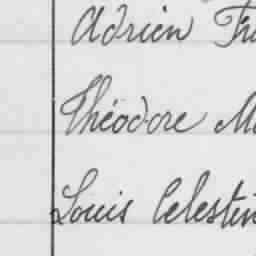 Adrien
Théodore
Louis Celestin